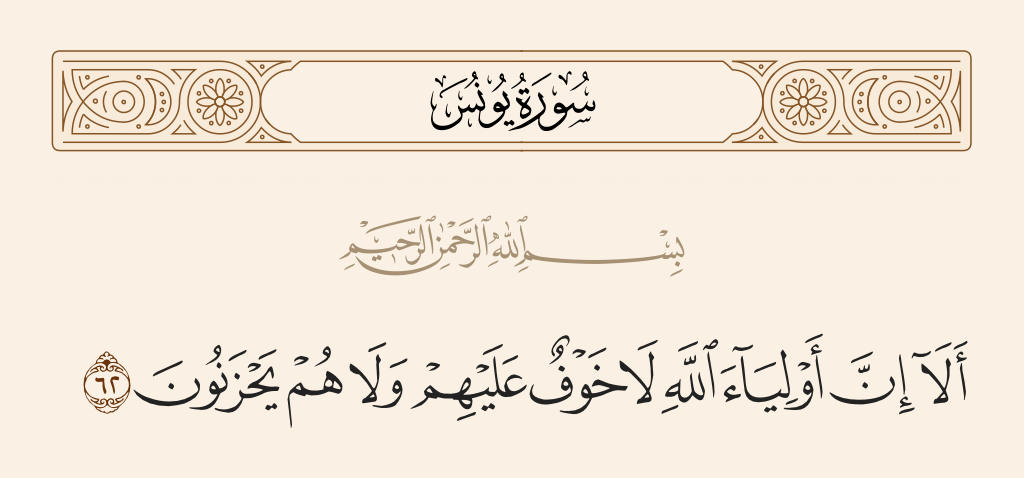 سُورَةُ يُونُسَ
بِسْمِ ٱللَّهِ ٱلرَّحْمَٰنِ ٱلرَّحِيمِ
أَلَآ إِنَّ أَوْلِيَآءَ ٱللَّهِ لَا خَوْفٌ عَلَيْهِمْ وَلَا هُمْ يَحْزَنُونَ ٦٢